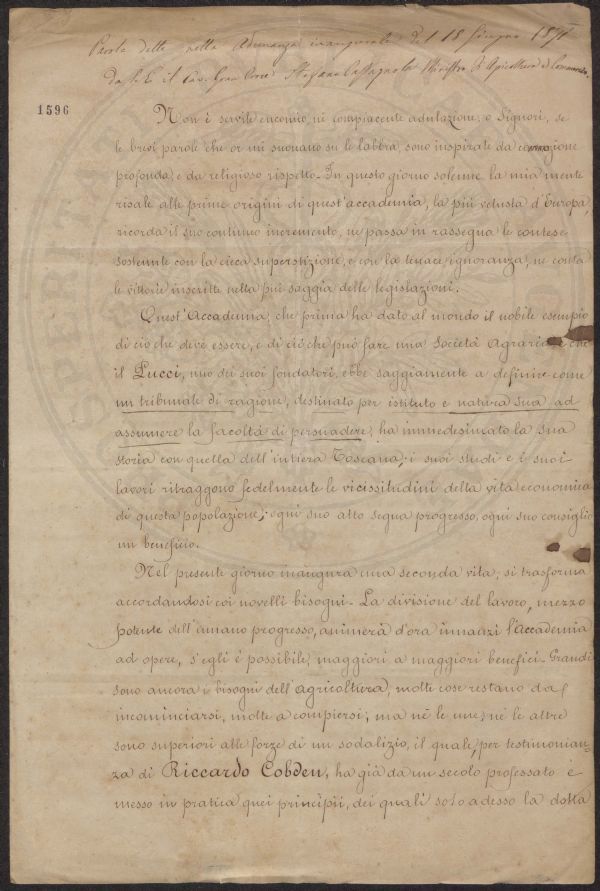 Parole dette nella Adunanza inaugurale del 18 Giugno 1871
da S. E. il Cav. Gran Croce Stefano Castagnola Ministro d'Agricoltura e Commercio.
1596
Non è servile encomio, nè compiacente adulazione, o Signori, se
le brevi parole che or mi suonano su le labbra, sono inspirate da
profonda, e da religioso rispetto. In questo giorno solenne la mia mente
risale alle prime origini di quest'accademia, la più vetusta d'Europa,
ricorda il suo continuo incremento, ne passa in rassegna le contese
sostenute con la cieca superstizione, e con la tenace ignoranza, ne conta
le vittorie inscritte nella più saggia delle legislazioni.
Quest'Accademia, che prima ha dato al mondo il nobile esempio
di ciò che deve essere, e di ciò che può fare una Società Agraria e che
il Pucci, uno dei suoi fondatori, ebbe saggiamente a definire come
un tribunale di ragione, destinato per istituto e natura sua ad
assumere la facoltà di persuadere, ha immedesimato la sua
storia con quella dell'intiera Toscana; i suoi studi e i suoi
lavori ritraggono fedelmente le vicissitudini della vita economica
di questa popolazione; ogni suo atto segna progresso, ogni suo consiglio
un beneficio.
Nel presente giorno inaugura una seconda vita, si trasforma
accordandosi coi novelli bisogni. La divisione del lavoro, mezzo
potente dell'umano progresso, animerà d'ora innanzi l'Accademia
ad opere, s'egli è possibile, maggiori a maggiori benefici. Grandi
sono ancora i bisogni dell'agricoltura, molte cose restano da
incominciarsi, molte a compiersi; ma nè le une, nè le altre
sono superiori alle forze di un sodalizio, il quale, per testimonian-
za di Riccardo Cobden, ha già da un secolo professato e
messo in pratica quei principii, dei quali solo adesso la dotta